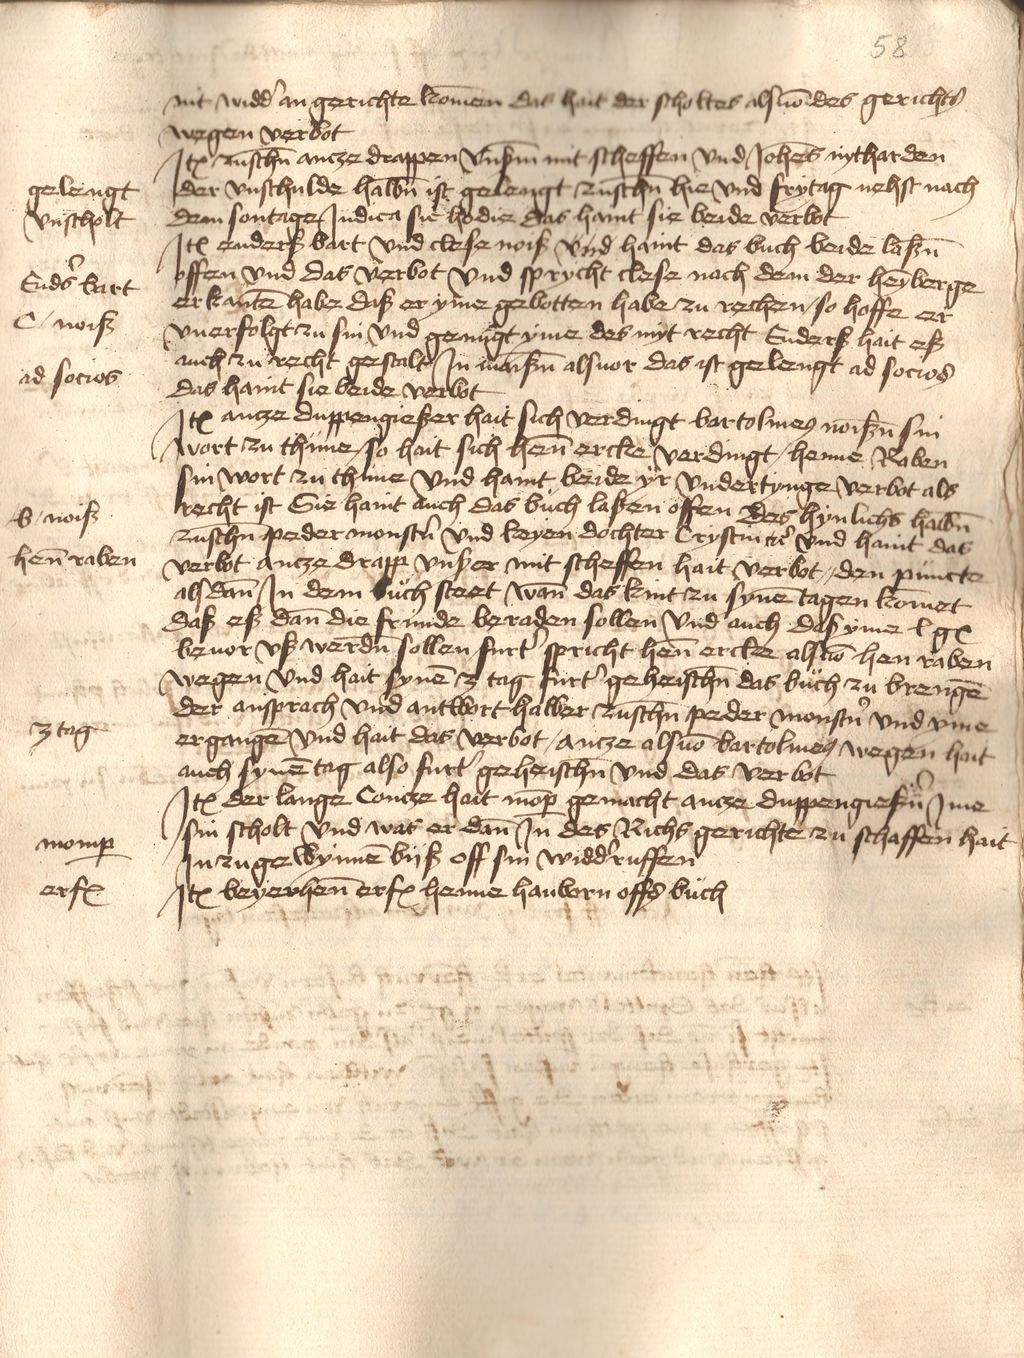 58
nit widd' an gerichte komen das hait der scholtes alsuō des gerichts
wegen verbot
Itē zuschn ancze drappen vnßm mit scheffen vnd Johes nytharden
gelengt
der vnschulde halbn ist gelengt zuschn hie vnd frytag nehst nach
vnscholt
dem sontage Judica sic hodie das haint sie beide verbot
Itē enderß bart vnd clese noiß vnd haint das buch beide laßn
End's bart
offen vnd das verbot vnd sprycht clese nach dem der heyberge
erkanten habe daß er yme gebotten habe zu rechen / so hoffe er
C / noiß
vnerfolgt zu sin vnd genugt yme des nyt recht Enderß hait eß
auch zu recht gestalt In maißn alsuor das ist gelengt ad socios
ad socios
das haint sie beide verbot
Itē ancze duppengießer hait sich verdingt bartolmes noißn sin
wort zu thune / so hait sich hen ercke verdingt / henne Raben
sin wort zu thune vnd haint beide yr vndertynge verbot als
recht ist Sie haint auch das buch laßen offen des hynlichs halbn
b / noiß
zuschn peder monst'n vnd keyen dochter Crystin vnd haint das
hen raben
verbot ancze drapp vnßer mit scheffen hait verbot / den puncte
als dan In dem buch steet wan das kint zu syne tagen komet
daß eß dan die frunde beraden sollen vnd auch das yme l gē
beuor vß werdn sollen furt' spricht hen ercke alsuō hen raben
wegen vnd hait synē z tag furt' geheischn das buch zu brengē
der ansprach vnd antwort halber zuschn peder monst'n vnd yme
z tag
ergangē vnd hait das verbot / ancze alsuō bartolmes wegen hait
auch synē tag also furt' geheischn vnd das verbot
Itē der lange Concze hait mōp gemacht ancze duppengießn Ime
sin scholt vnd was er dan In des Richs gerichte zu schaffen hait
momp
In zu gewynnē byß off sin widd'ruffen
erfē
Itē beyerhen erfē henne hanborn offs buch